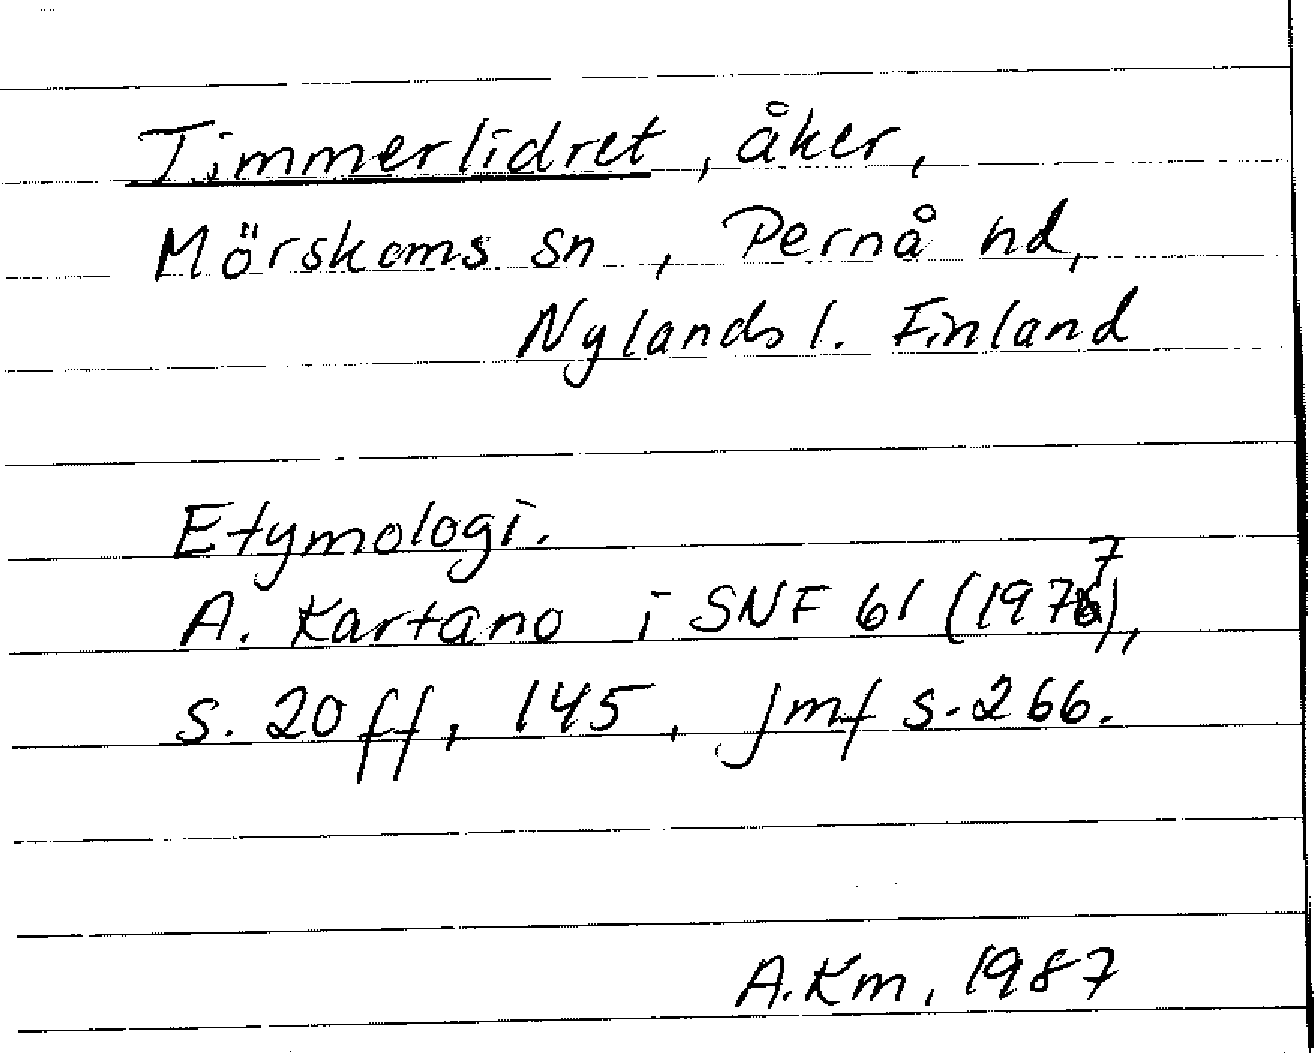 Timmerlidret, åker,
Mörskoms sn, Pernå hd,
Nylands l. Finland
Etymologi.
A. Kartano i SNF 61 (1977),
s. 20 ff, 145, jmf s. 266.
A.Km, 1987